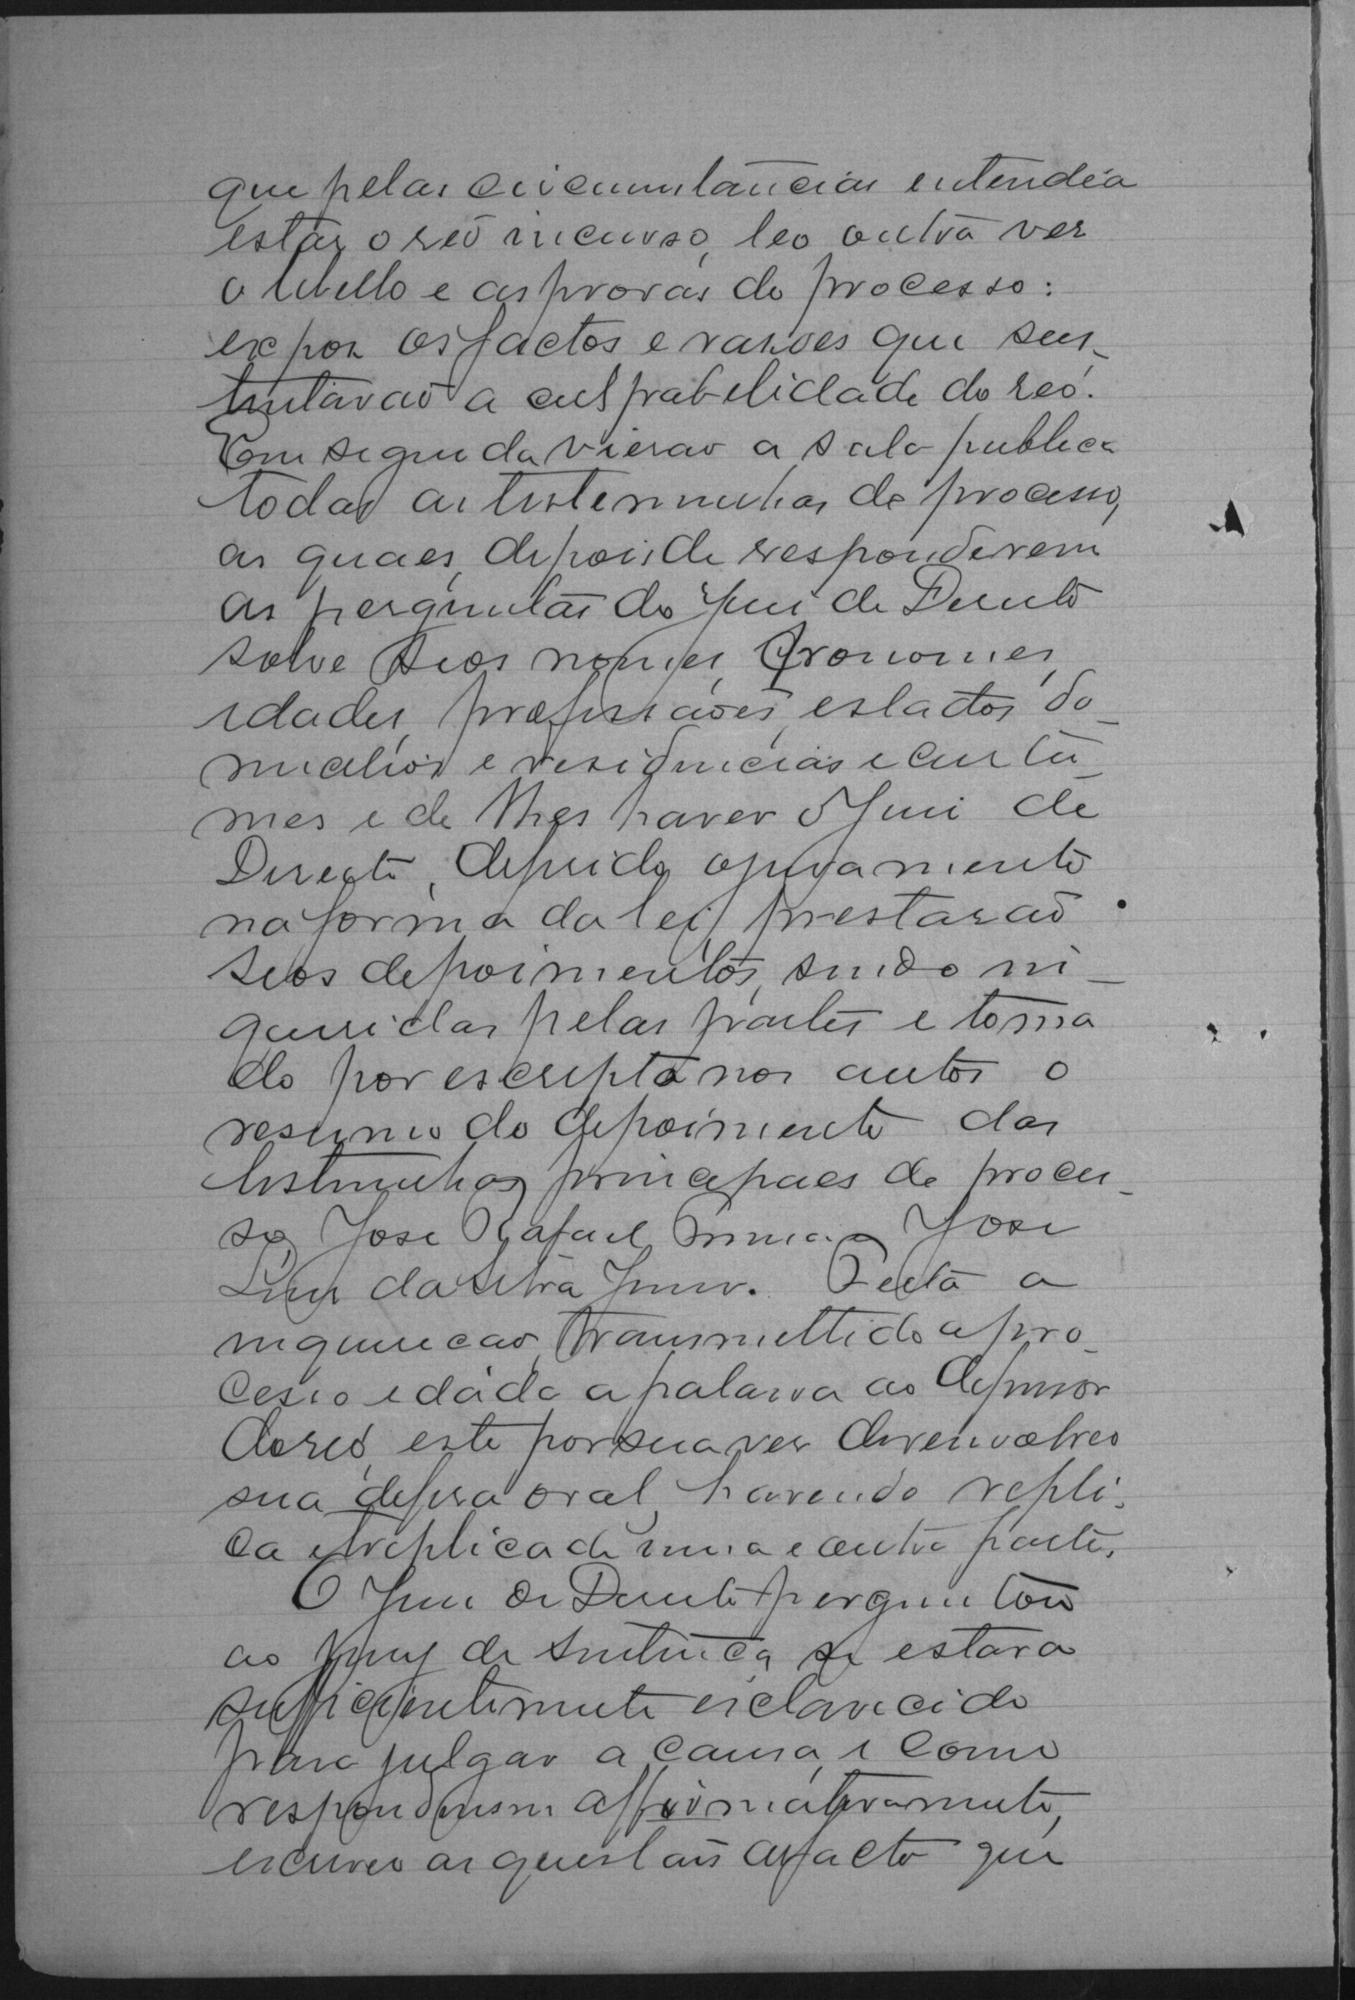 que pelas circumstancias entendia
estar o reo incurso, leo outra vez
o libello e as provas do processo:
expoz os factos e razoes que sus-
tentavão a culpabelidade do reo.
Em seguida vierão a sala publica
todas as testemunhas do processo,
as quaes, depois de responderem
as perguntas do Juiz de Direito
sobre seos nomes, pronomes,
idades, profissões, estados, do-
micilios e residencias e custu-
mes e de lhes haver o Juiz de
Direito, deferido o juramento
na forma da lei, prestarão
seos depoimentos, sendo in-
queridas pelas partes e toma
do por escripto nos autos o
resumo do depoimento das
testemunhas principaes do proces-
so, Jose Rafael José
Luiz da Silva Junr. Feita a
inquirição, transmettido a pro-
cesso e dada a palavra ao defensor
do reo, este por sua vez desenvolveo
sua defesa oral, havendo repli-
ca e treplica de uma e outra parte.
O Juiz de Direito perguntou
ao Jury de Sentença, se estava
sufficientemente esclarecido
para julgar a causa, e como
respondessem affirmativamente,
escreveo as questões de facto que